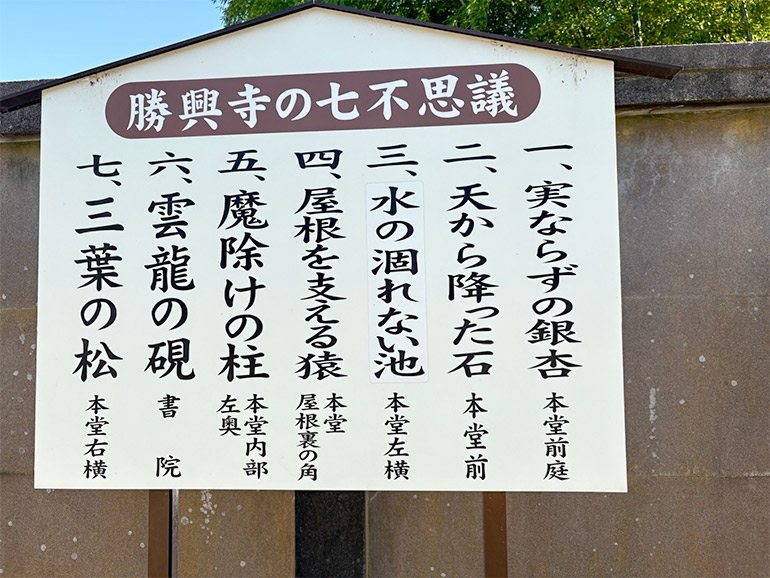 勝興寺の七不思議
一、実ならずの銀杏 本堂前庭
二、天から降った石 本堂前
三、水の涸れない池 本堂左横
四、屋根を支える猿 本堂屋根裏の角
五、魔除けの柱 本堂内部左奥
六、雲龍の硯 書院
七、三葉の松 本堂右横